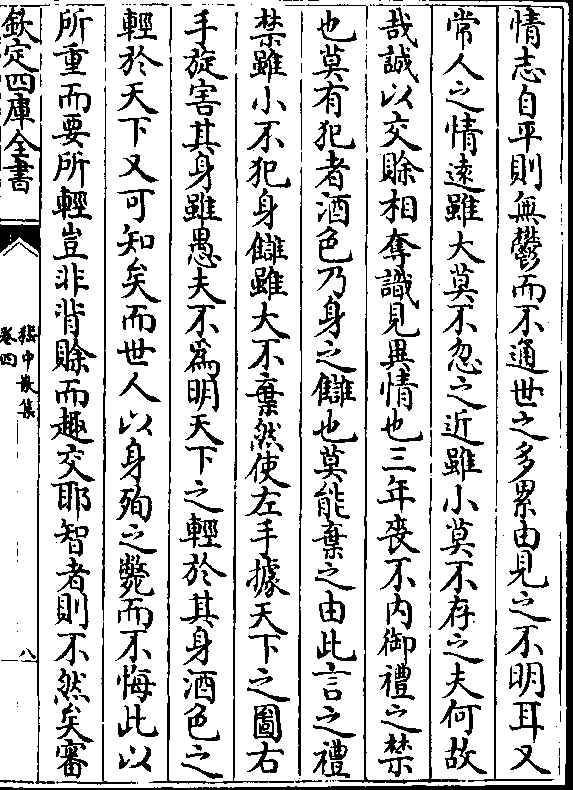 情志自平則無鬱而不通世之多累由見之不明耳又
常人之情遠雖大莫不忽之近雖小莫不存之夫何故
哉誠以交賒相奪識見異情也三年喪不内御禮之禁
也莫有犯者酒色乃身之讎也莫能棄之由此言之禮
禁雖小不犯身讎雖大不棄然使左手據天下之圖右
手旋害其身雖愚夫不為明天下之輕於其身酒色之
輕於天下又可知矣而世人以身殉之斃而不悔此以
所重而要所輕豈非背賒而趣交耶智者則不然矣審
欽定四庫全書
嵇中散集
卷四
八